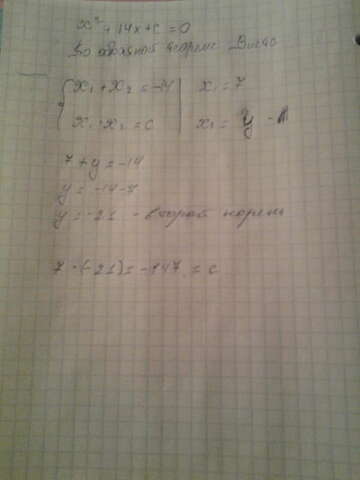 x² + 14x + c = 0
По обратной теореме Виета
{ x₁ + x₂ = -14 | x₁ = 7
x₁ · x₂ = c | x₂ = y
7 + y = -14
y = -14 - 7
y = -21 - второй корень
7 · (-21) = -147 = c